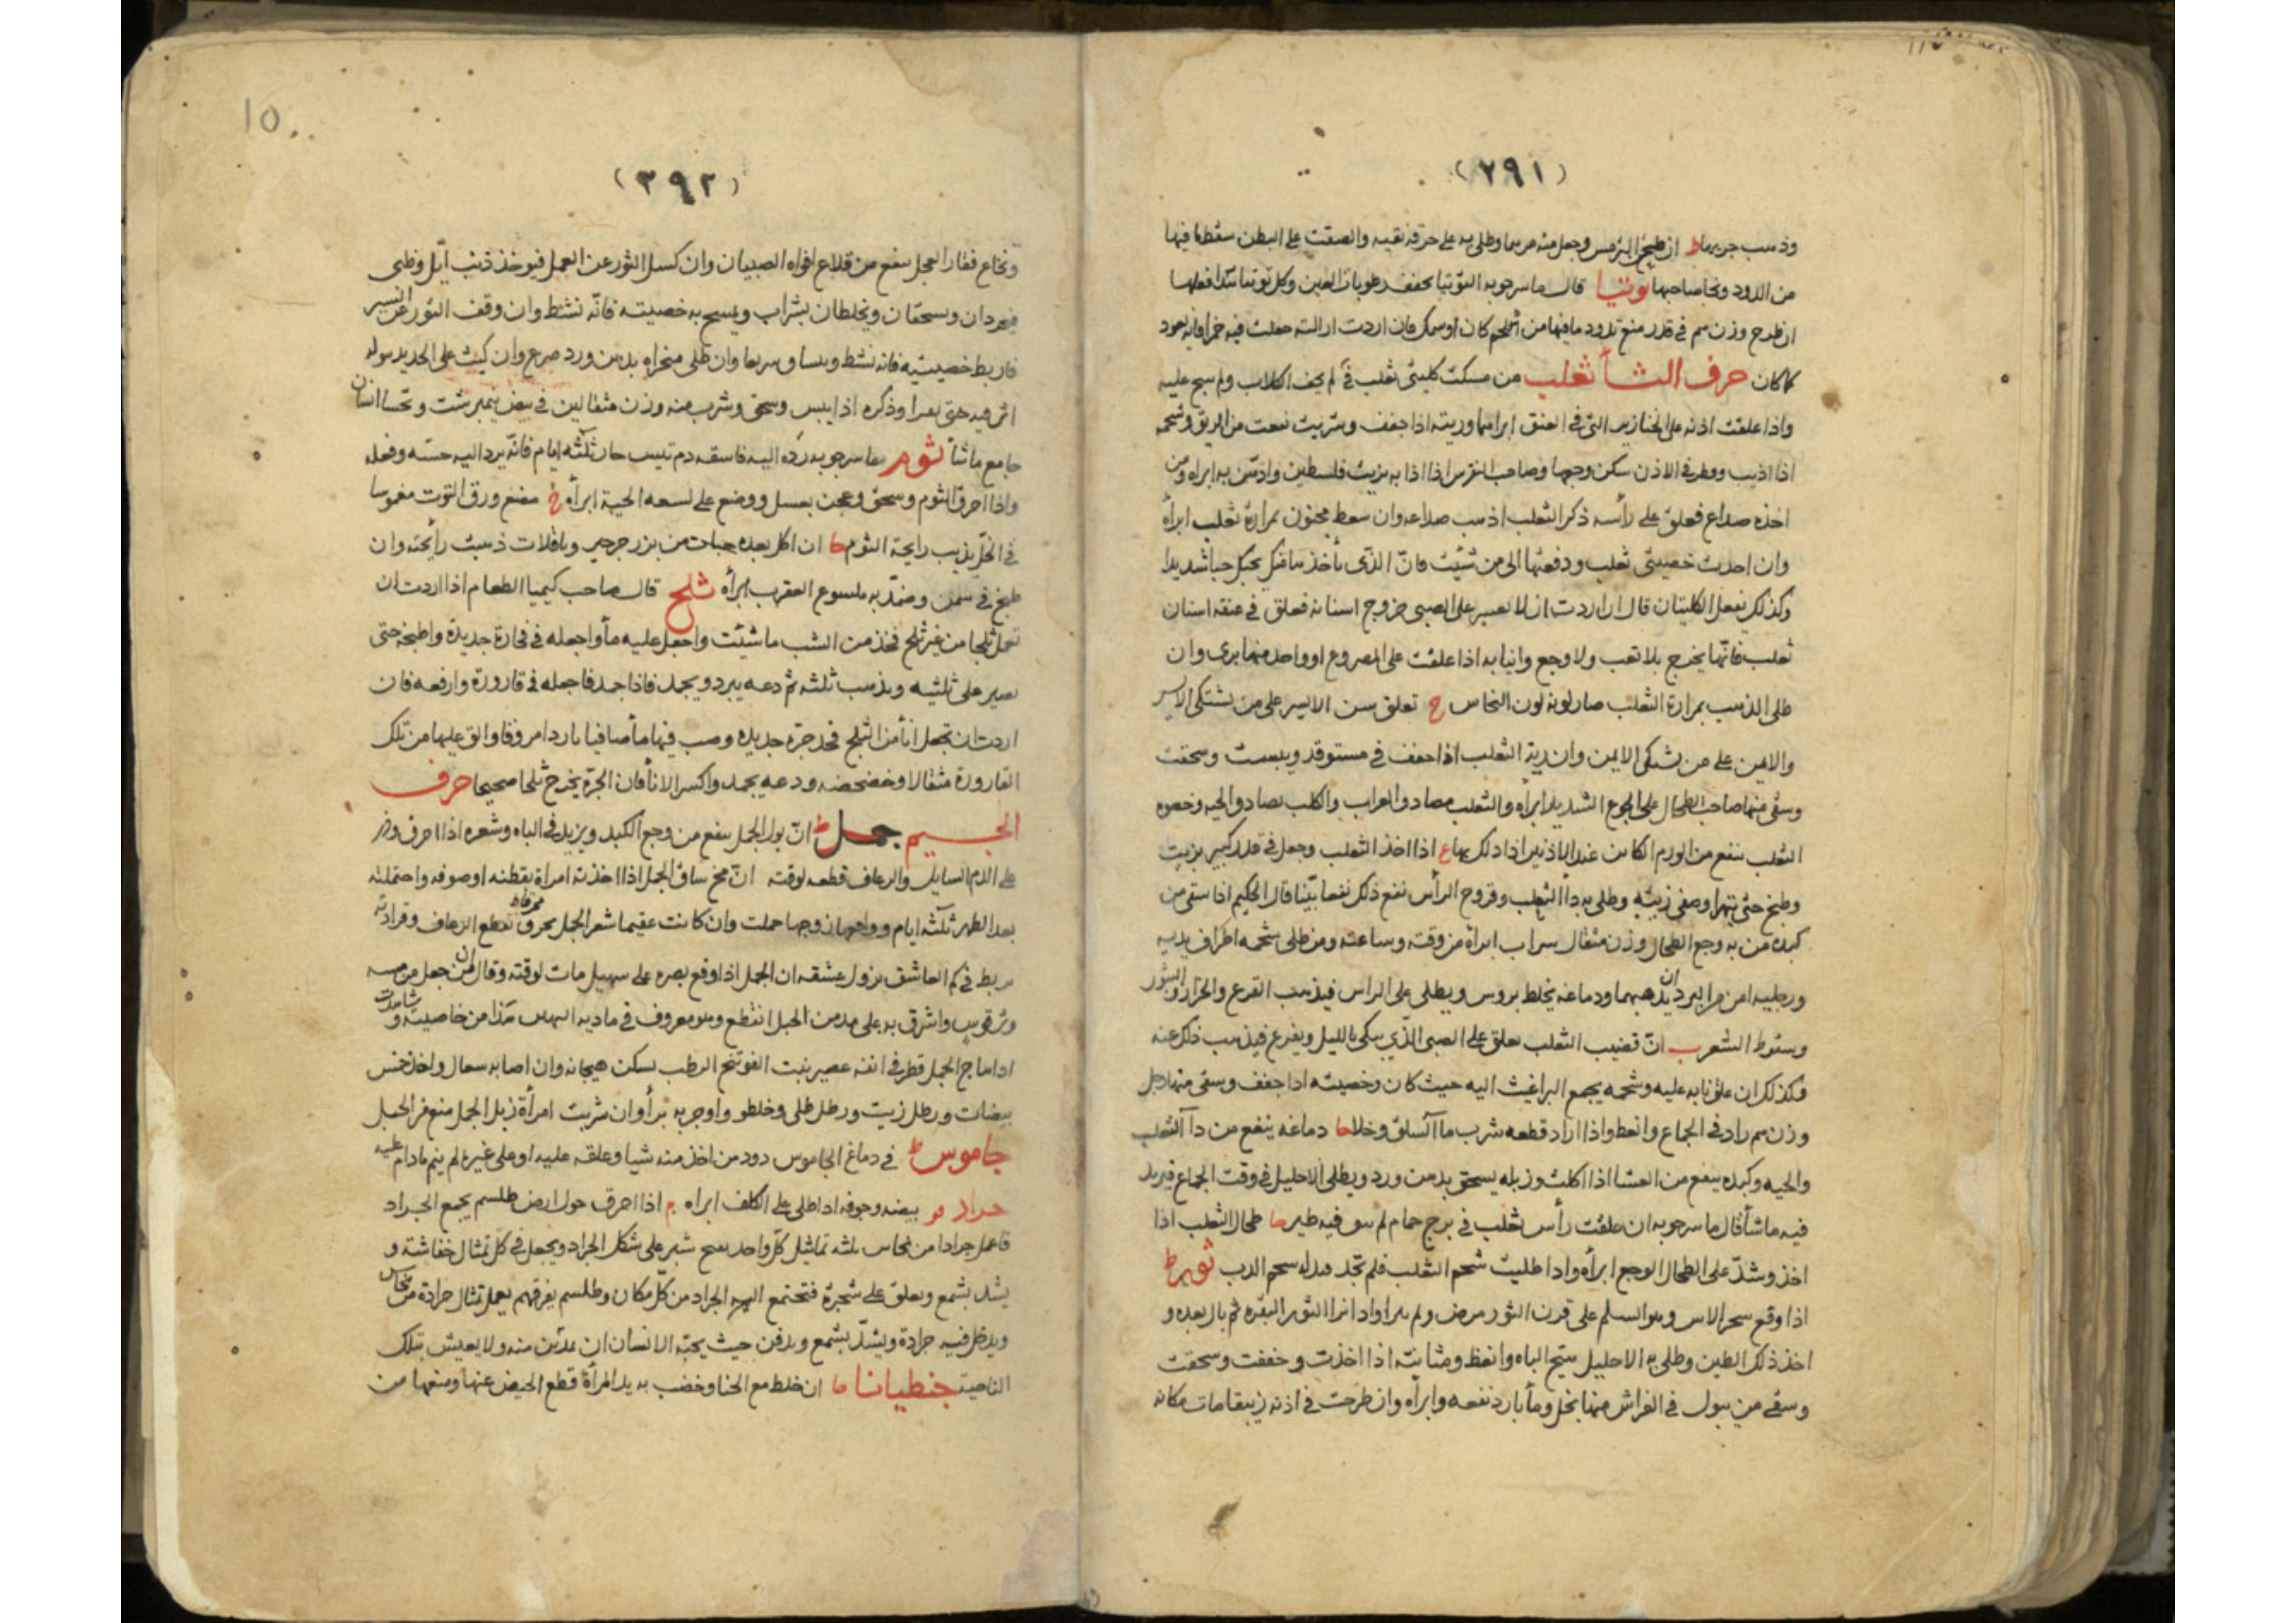 (٢٩١)
وذهب جربها ط ان طبخ الترمس وجعل منه مرهما وطلى به على خرقة نقيه والصقت على البطن سقط ما فيها
من الدود ونجا صاحبها توتيا قال ماسرجويه التوتيا يجفف رطوبات العين وكل توتيا
ان طرح وزن سم في قدر منع تدود ما فيها من اى لحم كان او سمك فان اردت ازالته جعلت فيه خمرا فانه يعود
كما كان حرف الثاء ثعلب من مسكت كليتى ثعلب في لم يخف الكلاب ولم ينبح عليه
واذا علقت اذنه على الخنازير التى في العنق ابراها وريته اذا جفف وشربت نفعت من الربو وشحمه
اذا اذيب وقطر في الاذن سكن وجعها وصاحب النقرس اذا اذابه بزيت فلسطين وادهن به ابراه ومن
اخذه صداع فعلق على رأسه ذكر الثعلب اذهب صداعه وان سعط مجنون بمرارة ثعلب ابرأه
وان اخذت خصيتى ثعلب ودفعتها الى من شئيت فان الذى يأخذها منك يحبك حبا شديدا
وكذلك يفعل الكليتان قال ان اردت ان لا يعسر على الصبى خروج اسنانه فعلق في عنقه اسنان
ثعلب فانها يخرج بلا تعب ولا وجع وانيابه اذا علقت على المصروع او واحد منها برى وان
طلى الذهب بمرارة الثعلب صار لونه لون النحاس ج تعلق سن الايسر على من يشتكى الايسر
والايمن على من يشتكى الايمن وان رية الثعلب اذا جفف في مستوقد ويبست وسحقت
وسقى منها صاحب الطحال على الجوع الشديد ابرأه والثعلب مصادق الغراب والكلب يصادق الحيه وخصوه
الثعلب ينفع من الورم الكائن عند الاذنين اذا دلك بها ع اذا اخذ الثعلب وجعل في قدر كبير بزيت
وطبخ حتى يتهرا وصفى زيته وطلى به دأ الثعلب وقروح الرأس نفع ذلك نفعا بيّنا قال الحكيم اذا سقى من
كبده من به وجع الطحال وزن مثقال بسراب ابرأه من وقته وساعته ومن طلى شحمه اطراف يديه
ورجليه امن من البرد ان يذهبهما ودماغه يخلط بروس ويطلى على الراس فيذهب القرع والحزاز والبثور
وسقوط الشعر ب انّ قضيب الثعلب يعلق على الصبى الذى يبكى بالليل ويفزع فيذهب ذلك عنه
وكذلك ان علق نابه عليه وشحمه يجمع البراغيث اليه حيث كان وخصيته اذا جفف وسقى منها رجل
وزن سم زاد في الجماع وانعظ واذا اراد قطعه شرب ماأ السلق وخلا حا دماغه ينفع من دآ الثعلب
والحيه وكبده ينفع من العشا اذا اكلت وزبله يسحق بدهن ورد ويطلى الاحليل في وقت الجماع فيزيد
فيه ماشأ قال ماسرجويه ان علقت رأس ثعلب في برج حمام لم يبق فيه طير حا طحال الثعلب اذا
اخذ وشدّ على الطحال الوجع ابرأه واذا طلبت شحم الثعلب فلم تجد فبدله شحم الدب ثور ط
اذا وقع سحر الاس وهو السلم على قرن الثور مرض ولم يبرا واذا نزا الثور البقره ثم بال بعده و
اخذ ذلك الطين وطلى به الاحليل هيج الباه وانعظ ومثانته اذا اخذت وجففت وسحقت
وسقى من يبول في الفراش منها بخل ومأ بارد نفعه وابرأه وان طرحت في اذنه زيبقا مات مكانه
(٢٩٢)
ونخاع فقار العجل ينفع من قلاع افواه الصبيان وان كسل الثور عن العمل فيؤخذ ذنب ايّل وظبى
فيجردان ويسحقان ويخلطان بشراب ويمسح به خصيته فانّه نشط وان وقف الثور عن السير
فاربط خصيتيه فانه نشط وينساق سريعا وان طلى منخراه بدهن ورد صرع وان كببت على الحديد بوله
اثر فيه حتى يصدا وذكره اذا يبس وسحق وشرب منه وزن مثقالين في بيض نيمبرشت وتحسا انسان
جامع ماشأ ثوم ما سرجويه رده اليه فاسقه دم تيس حار ثلثه ايام فانّه يرد اليه حسّه وفعله
واذا احرق الثوم وسحق وعجن بعسل ووضع على لسعه الحية ابرأه خ مضغ ورق التوت مغموسا
في الخل يذهب رايحة الثوم حا ان اكل بعده حبات من بزر جرجير وباقلات ذهبت رايحته وان
طبخ في سمن وضمد به ملسوع العقرب ابرأه ثلج قال صاحب كيميا الطعام اذا اردت ان
تعمل ثلجا من غير ثلج فخذ من الشب ماشئيت واجعل عليه مأ واجعله في فخارة جديدة واطبخه حتى
تصير على ثلثيه ويذهب ثلثه ثم دعه يبرد ويجمد فاذا جمد فاجعله في قارورة وارفعه فان
اردت ان تجعل انأ من الثلج فخذ جرة جديده وصب فيها مأ صافيا باردا مروقا والق عليها من تلك
القارورة مثقالا وخضخضه ودعه يجمد واكسر الانأ فان الجرة يخرج ثلجا صحيحا حرف
الجيم جمل ط انّ بول الجمل ينفع من وجع الكبد ويزيد في الباه وشعره اذا احرق وذر
على الدم السايل والرعاف قطعه لوقته انّ مخ ساق الجمل اذا اخذته امراة بقطنه او صوفه واحتملته
بعد الطهر ثلثه ايام وواقعها زوجها حملت وان كانت عقيما شعر الجمل يحرق تقطع الرعاف وقرادته
يربط في كم العاشق يزول عشقه ان الجمل اذا وقع بصره على سهيل مات لوقته وقال ان من جعل من
واشرق به على مدمن الحبل انقطع وهو معروف في هذا من خاصيته وشاهدت
اذا هاج الجمل قطر في انفه عصير نبت الفوتنج الرطب يسكن هيجانه وان اصابه سعال واخذ خمس
بيضات ورطل زيت ورطل طلى وخلط واوجر به برأ وان شربت امرأة زبل الجمل منع من الحبل
جاموس ط في دماغ الجاموس دود من اخذ منه شيا وعلقه عليه او على غيره لم ينم مادام عليه
جراد مو بيضه وجوفه اذا طلى على الكلف ابراه م اذا احرق حول ارض طلسم يجمع الجراد
فاعمل جرادا من نحاس ثلثه تماثيل كل واحد شبر على شكل الجراد ويجعل في كل تمثال خفاشة و
يشد بشمع ويعلق على شجرة فتجتمع اليه الجراد من كل مكان وطلسم يفرقهم يعمل تمثال جرادة من نحاس
ويدخل فيه جرادة ويشدّ بشمع ويدفن حيث يحبّه الانسان ان منه ولا يعيش بتلك
الناحية جنطيانا حا ان خلط مع الحنا وخضب به يد المرأة قطع الحيض عنها ومنعها من